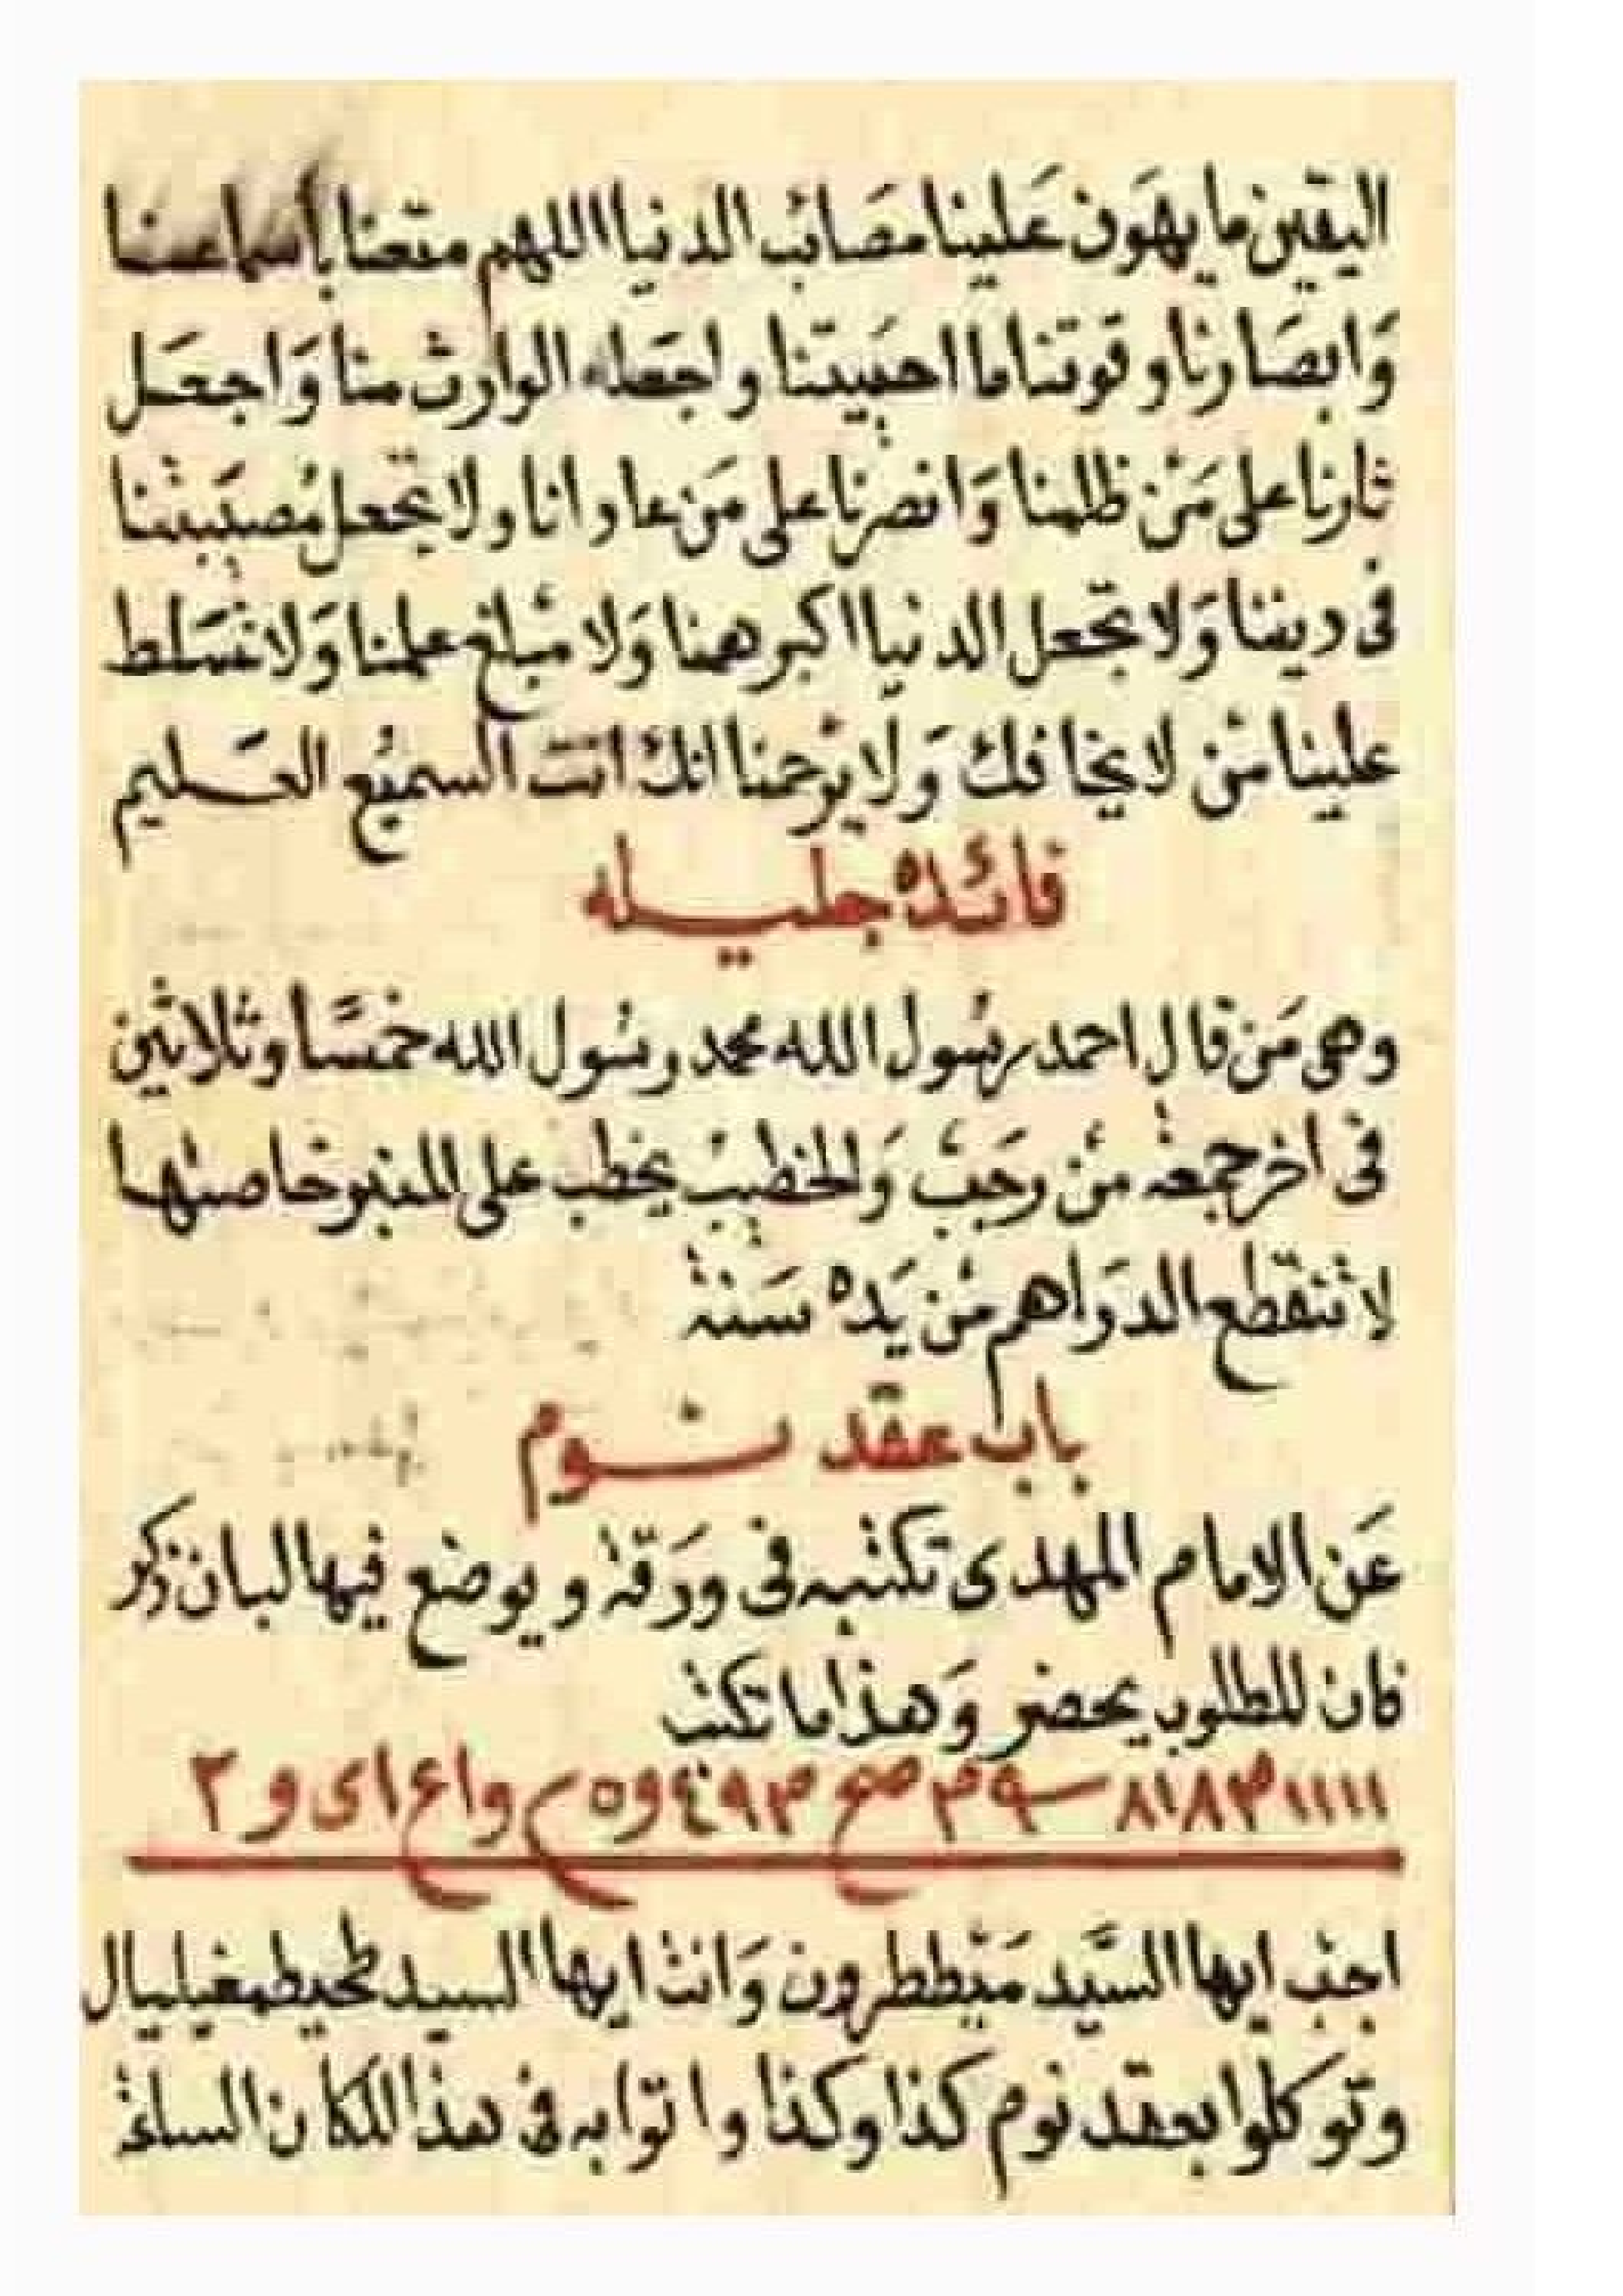 اليقين ما يهون علينا مصائب الدنيا اللهم متعنا بأسماعنا
وَابصَارنا وقوتنا ما احييتنا واجعَله الوارث منا وَاجعَل
ثارنا على مَن ظلمنا وَانصرنا على مَن عادانا ولا تجعل مُصيبتنا
فى ديننا وَلا تجعل الدنيا اكبر همنا وَلا مبلغ علمنا وَلا تسَلط
علينا مَن لا يخافك وَلا يرحمنا انك انت السميع العَليم
فائدة جليله
وهى مَن قال احمد رسُول الله محمد رسُول الله خمسًا وثلاثين
فى اخر جمعة من رجَبْ وَالخطيبْ يخطب على المنبر وخاصتها
لا تنقطع الدرَاهم من يَده سَنة
باب عقد نوم
عَن الامام المهدى تكتبه فى ورَقة ويوضع فيها لبان ذكر
فان المطلوب يحضر وَهذا ما تكتب
١١١١٣٨١٨ ٩ م صع ٣٩٤ و٥ واع اى و ٢
اجب ايها السَّيد مَيططرون وَانت ايها السيد طحيطمغيليال
وتوكلوا بعقد نوم كذا وكذا واتوا به فى هذا المكان الساعة